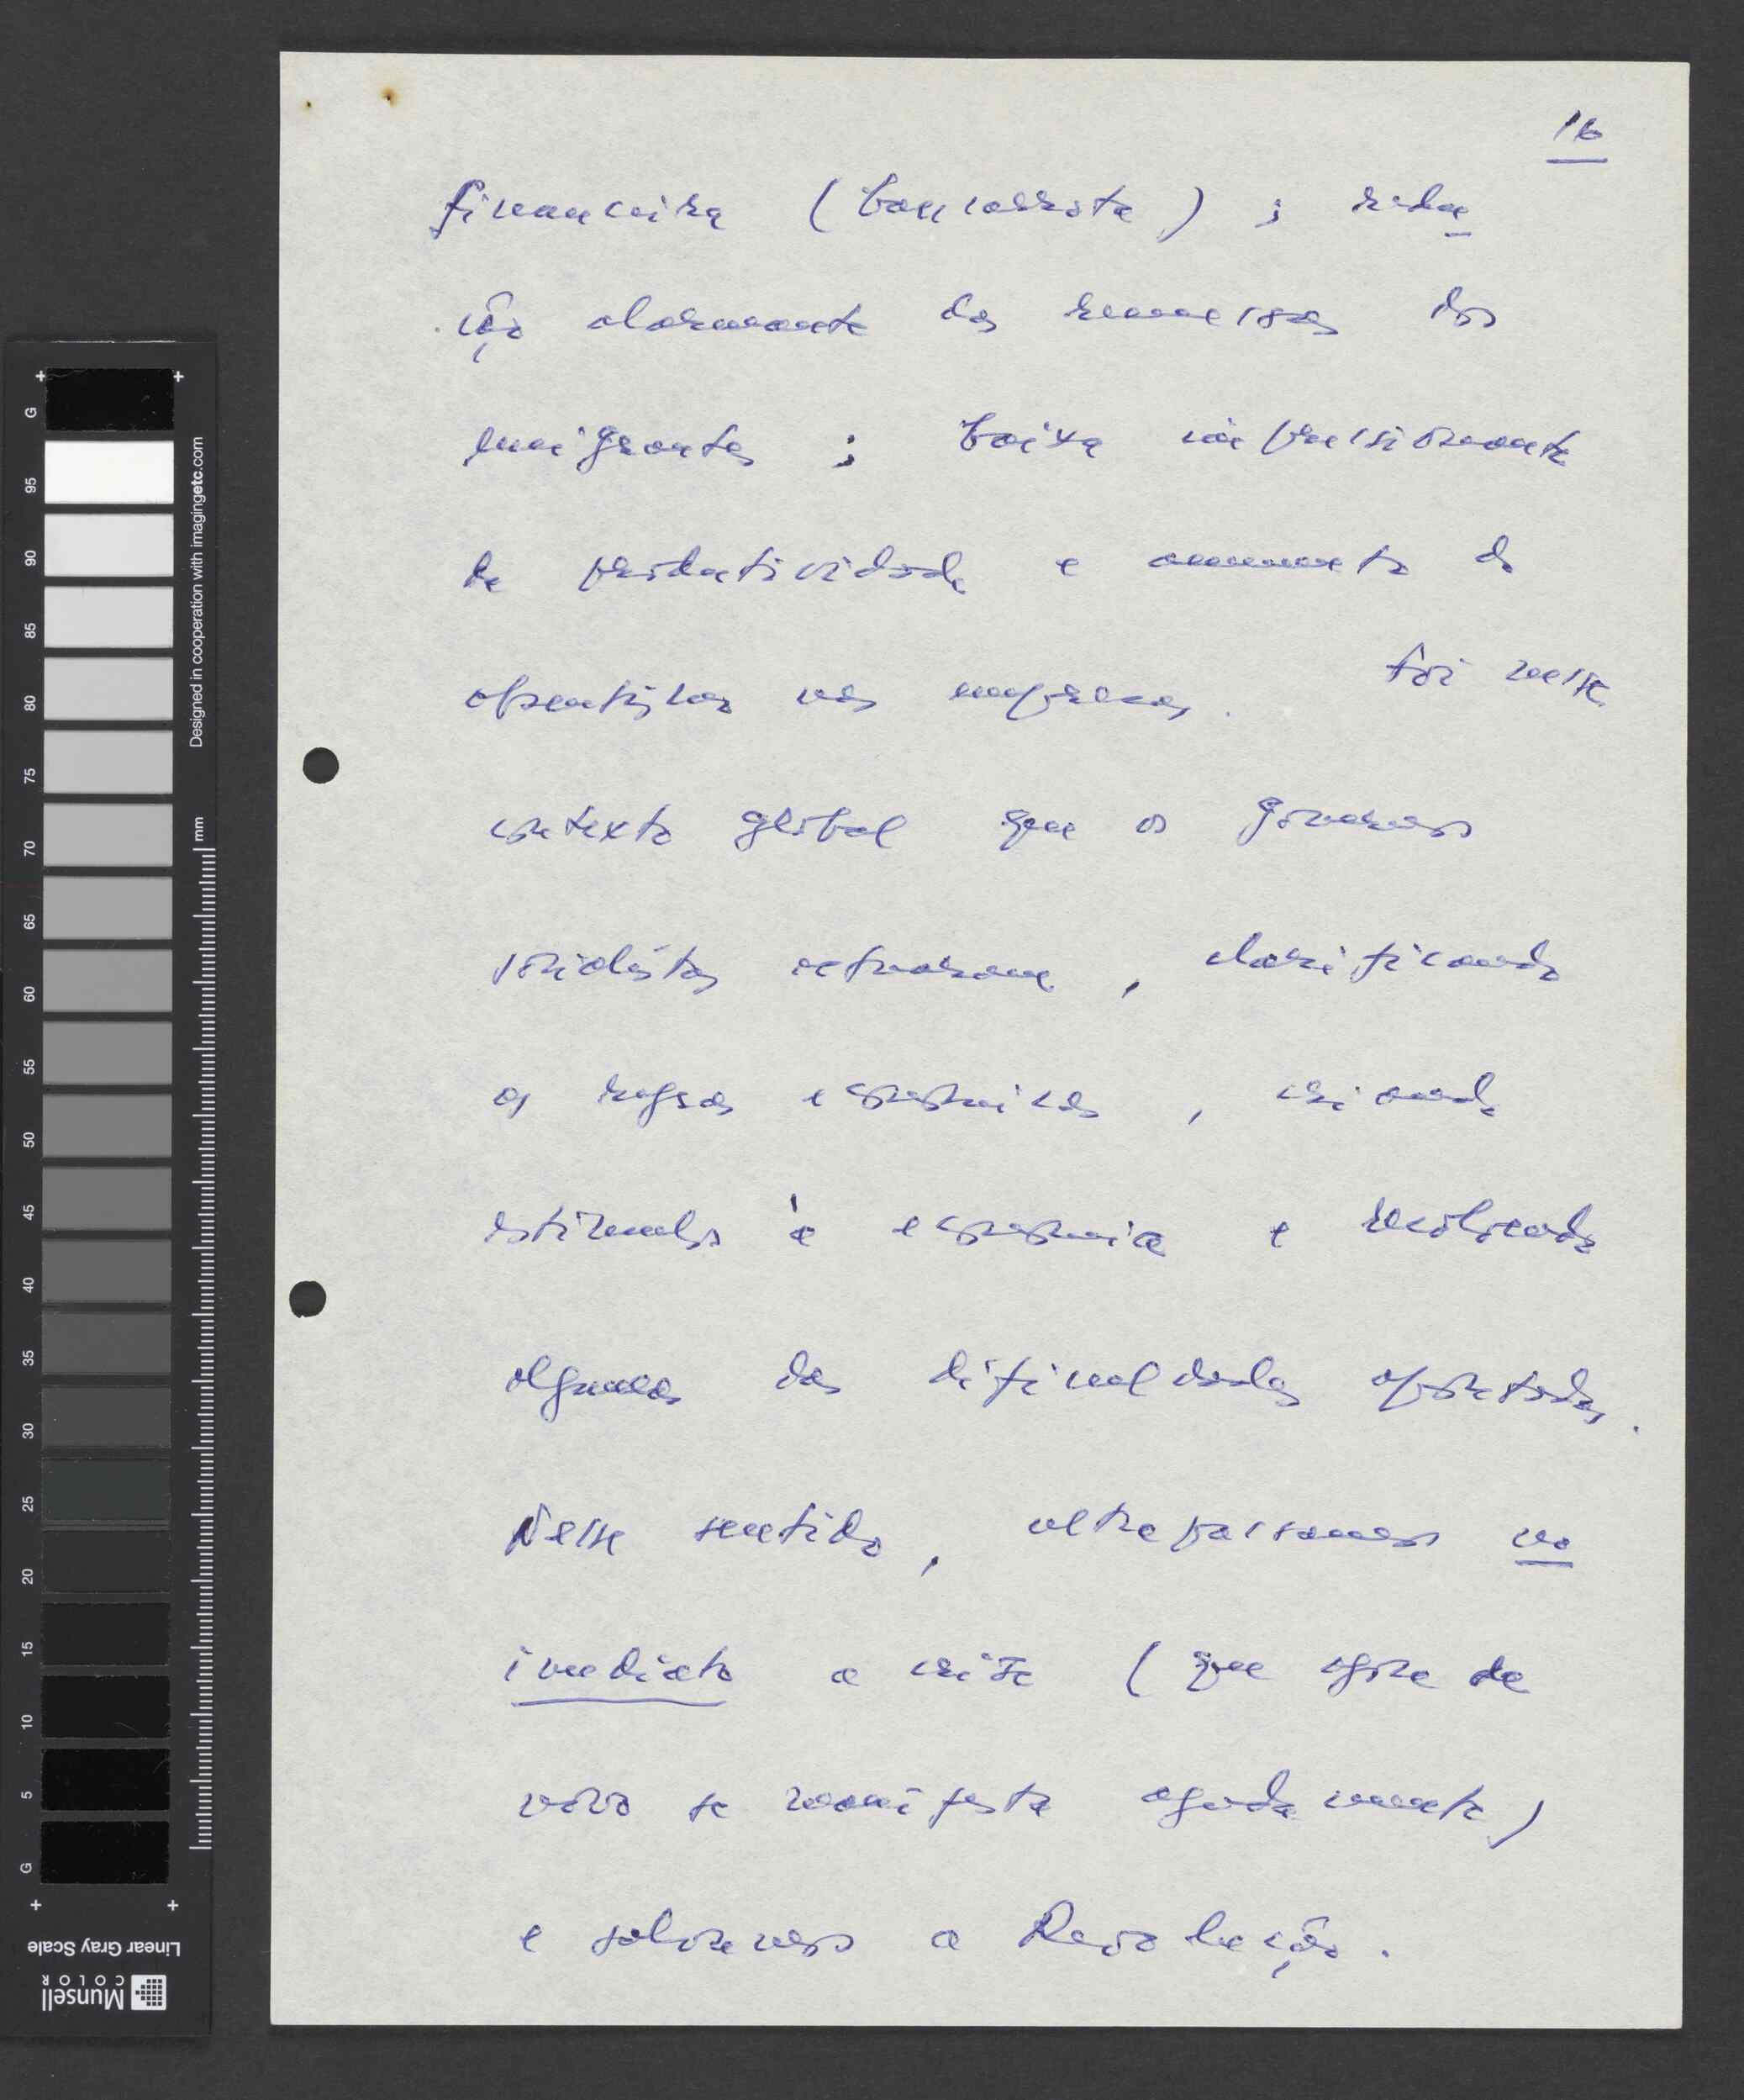 16
financeira (bancarrota); redu
ção alarmante das remessas dos
emigrantes; baixa impressionante
da produtividade e aumento do
absentismo nas empresas. Foi neste
contexto global que os governos
socialistas actuaram, clarificando
as regras económicas, criando
estímulos à economia e resolvendo
algumas das dificuldades apontadas.
Nesse sentido, ultrapassamos no
imediato a crise (que agora de
novo se manifesta agudamente)
e salvamos a Revolução.
G
95
90
85
80
75
70
65
60
55
50
45
40
35
30
25
20
15
10
5
G
Designed in cooperation with imagingetc.com
mm
Linear Gray Scale
Munsell
COLOR